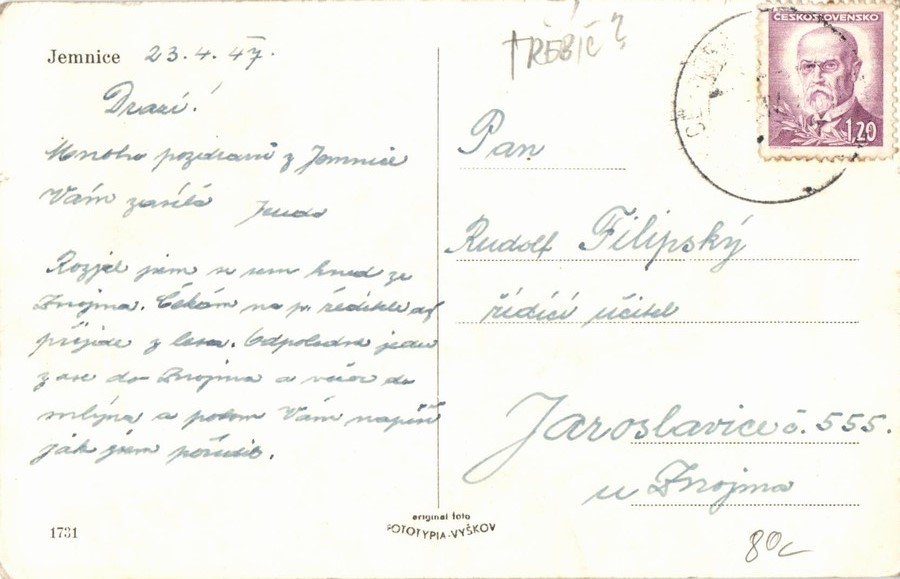 Jemnice 23.4.47.
Drazí!
Mnoho pozdravů z Jemnice
Vám zasílá Jenda
Rozjel jsem se sem hned ze
Znojma. Čekám na p. ředitele až
přijde z lesa. Odpoledne jedu
zase do Znojma a večer do
mlýna a potom Vám napíši
jak jsem pořídil.
1731
original foto
FOTOTYPIA-VYŠKOV
TŘEBÍČ?
ČESKOSLOVENSKO
1,20
Pan
Rudolf Filipský
řídící učitel
Jaroslavice č. 555.
u Znojma
80,-